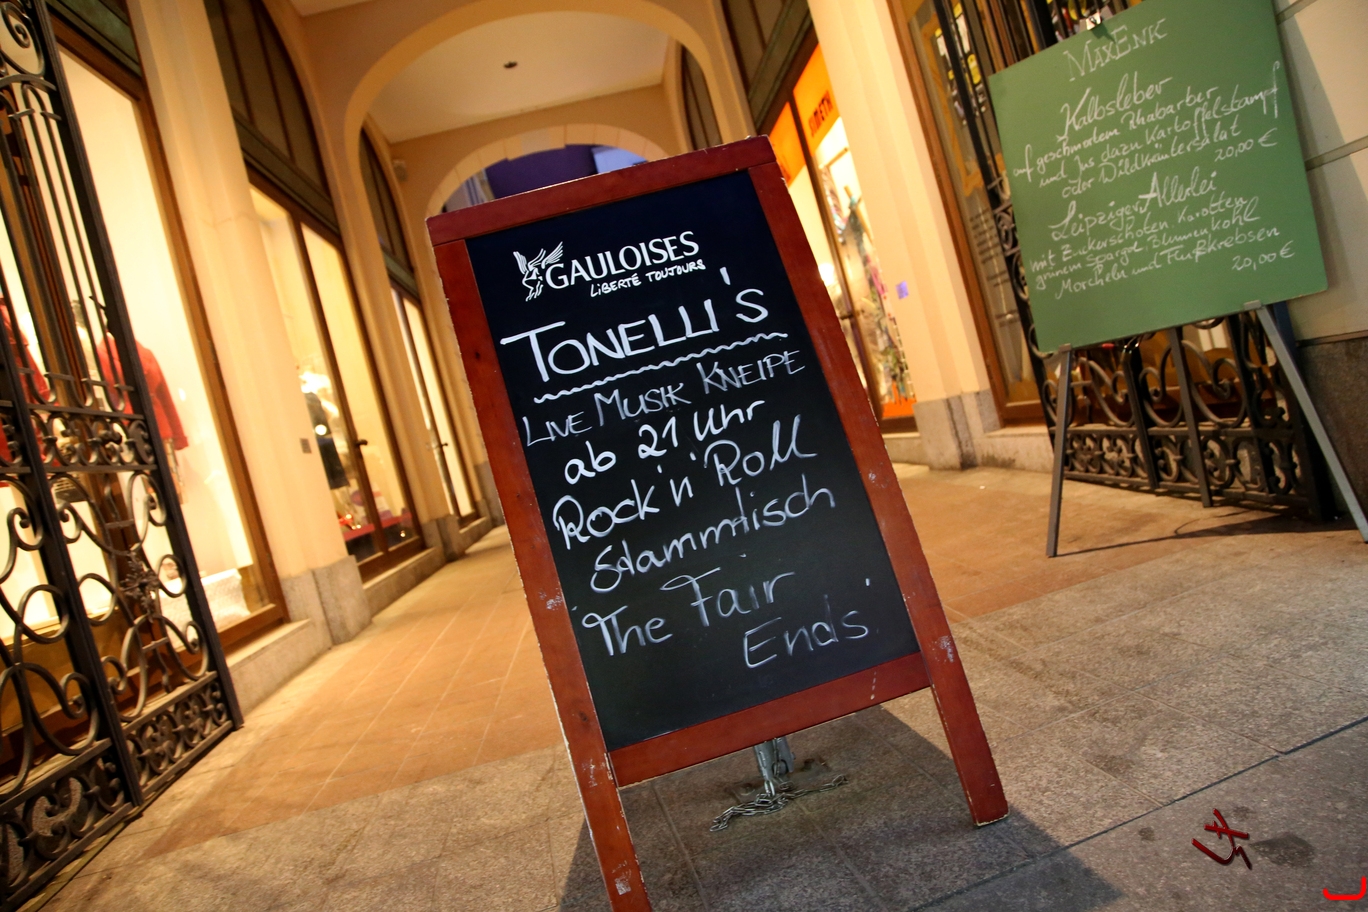 GAULOISES
LIBERTÉ TOUJOURS
TONELLI'S
LIVE MUSIK KNEIPE
ab 21 Uhr
Rock 'n' Roll
Stammtisch
'The Fair
Ends'
MAXENK
Kalbsleber
auf geschmortem Rhabarber
und Jus dazu Kartoffelstampf
oder Wildkräutersalat
20,00 €
Leipziger Allerlei
mit Zukerschoten, Karotten
grünem Spargel Blumenkohl
Morcheln und Flußkrebsen
20,00 €